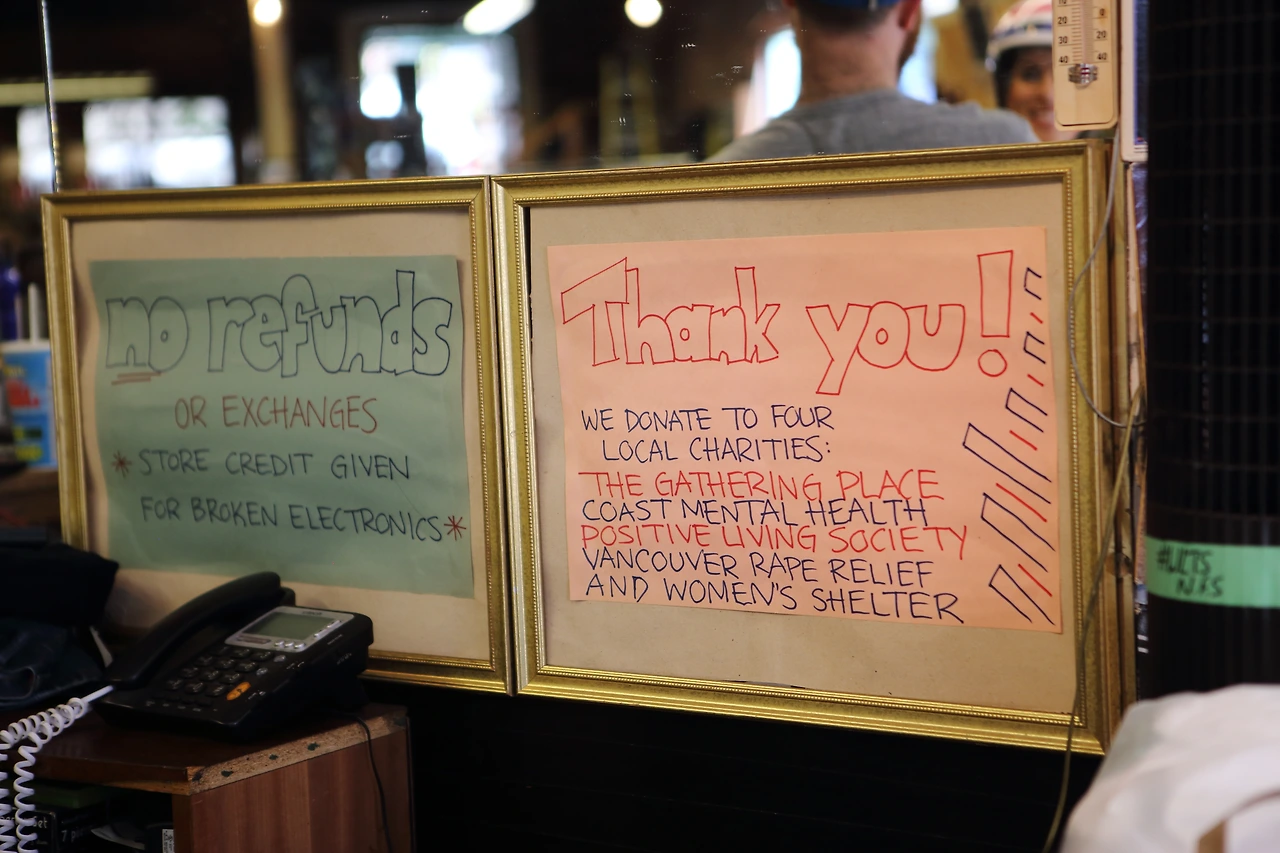 no refunds
OR EXCHANGES
* STORE CREDIT GIVEN
FOR BROKEN ELECTRONICS *
Thank you!
WE DONATE TO FOUR
LOCAL CHARITIES:
THE GATHERING PLACE
COAST MENTAL HEALTH
POSITIVE LIVING SOCIETY
VANCOUVER RAPE RELIEF
AND WOMEN'S SHELTER